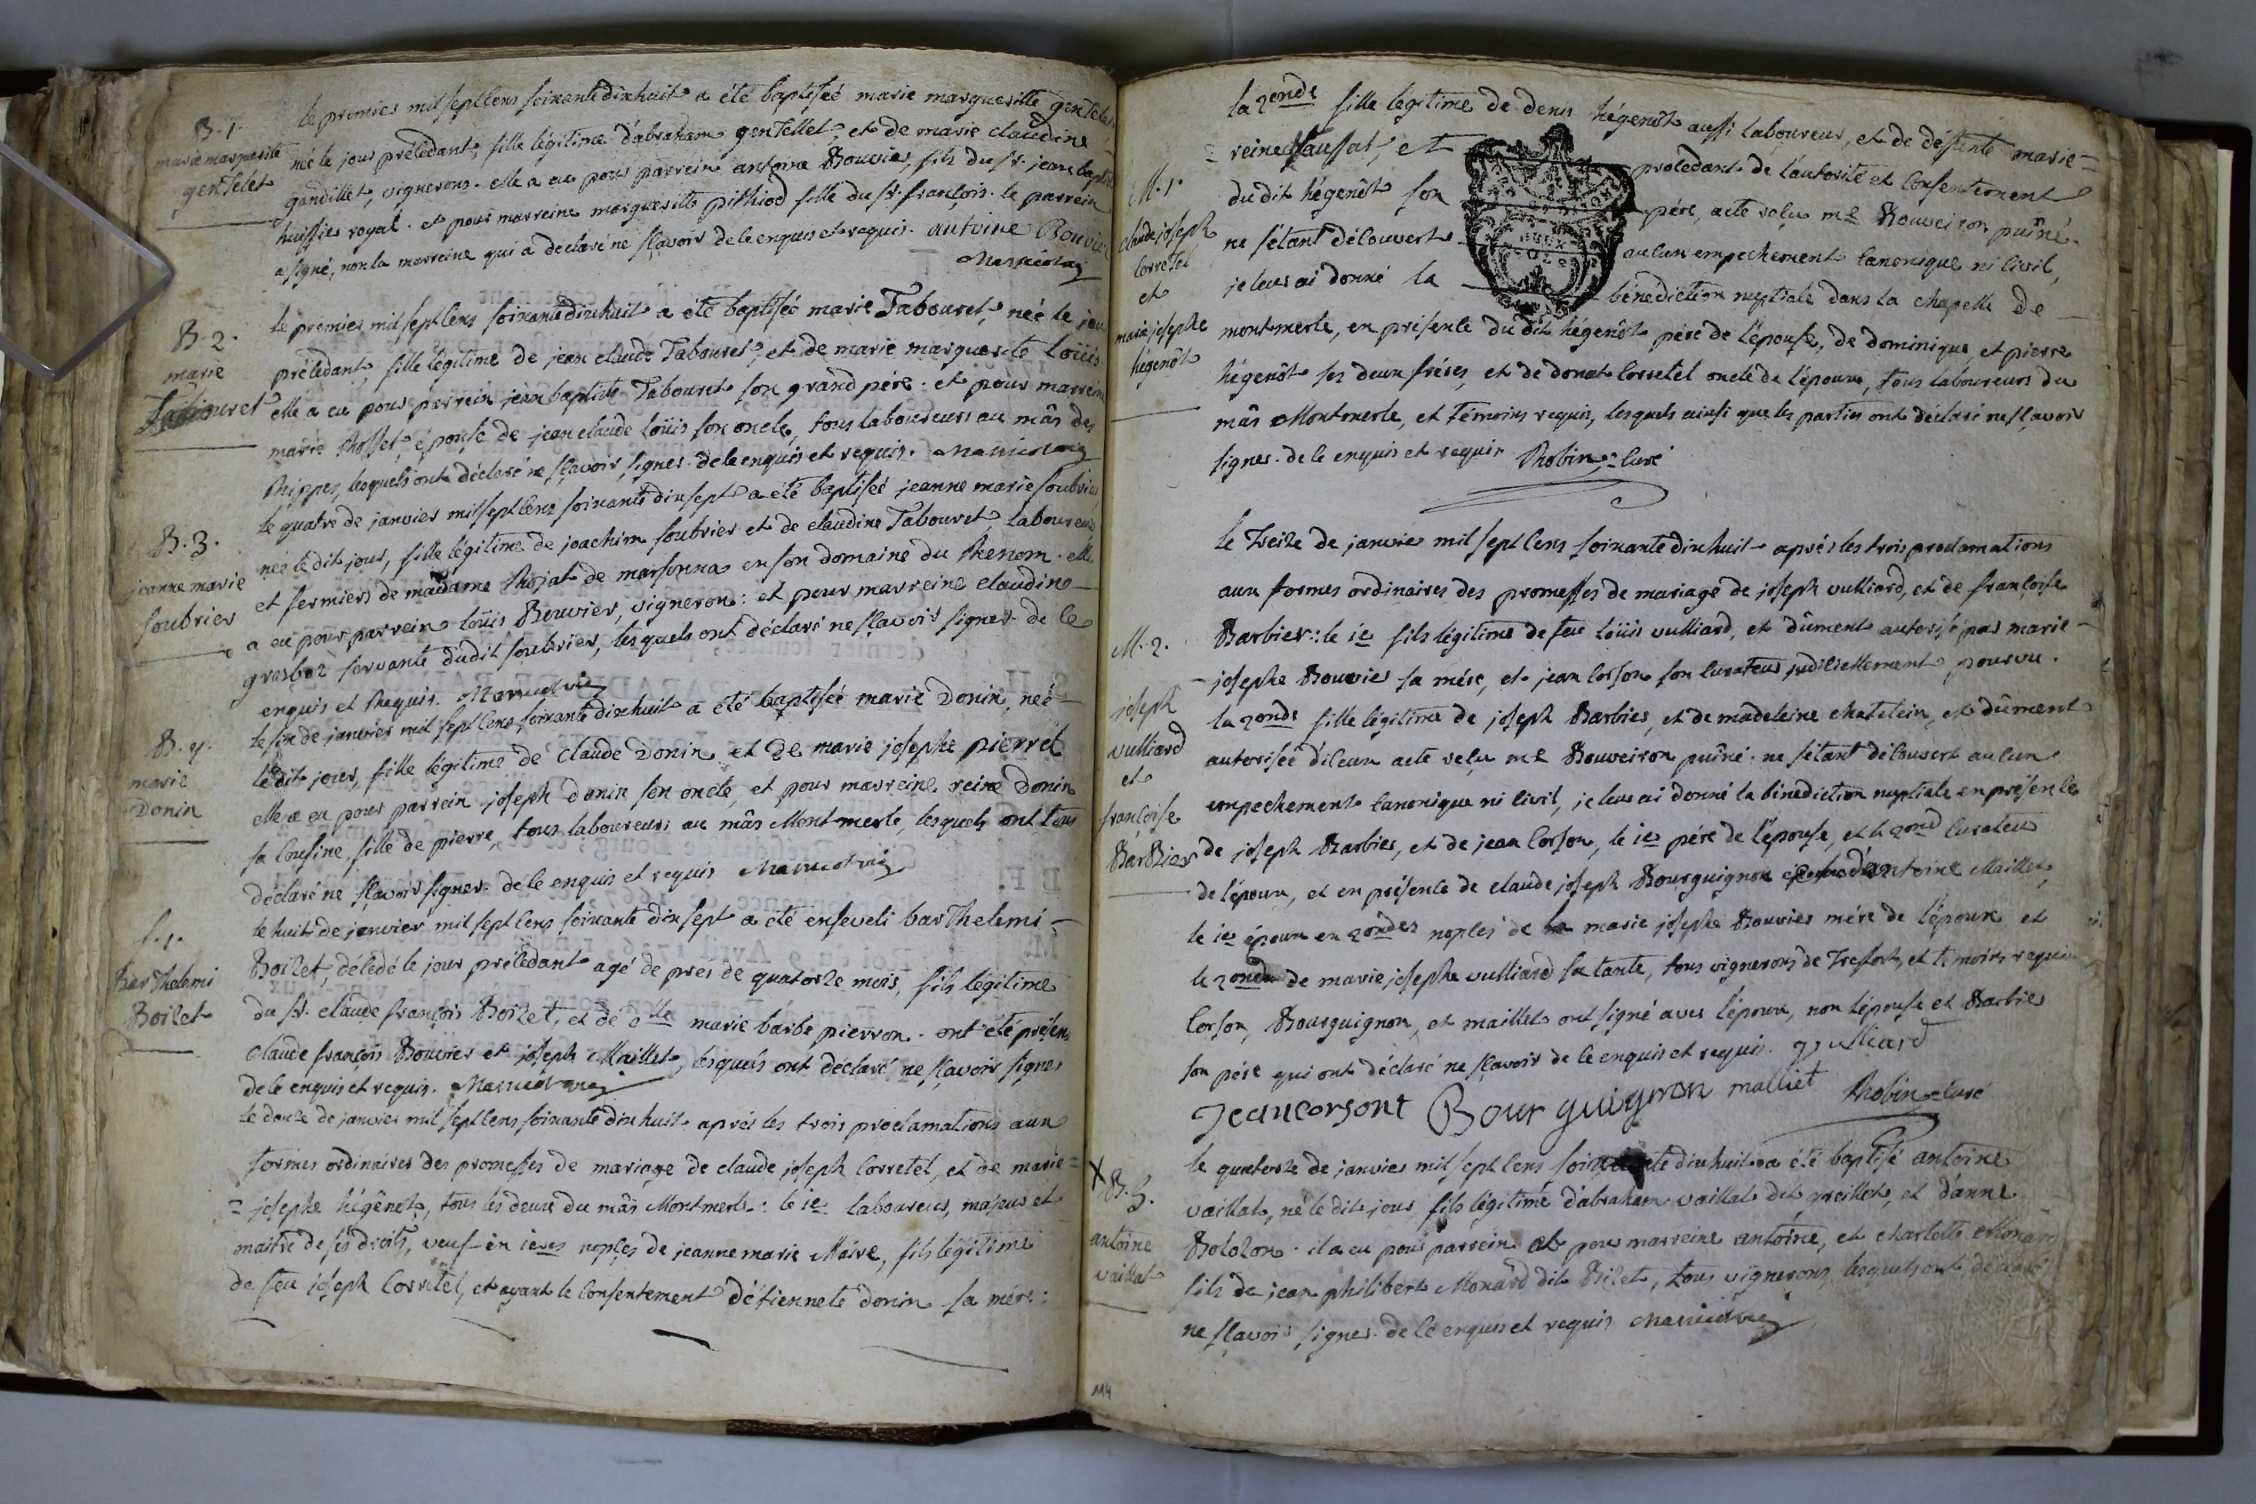 B. 1.
marie marguerite
gentelet
le premier mil sept cens soixante dix huit a été baptiséé marie marguerite gentelet
néé le jour précédant, fille légitime d'abraham gentellet, et de marie claudine
gandillet, vignerons. elle a eu pour parrein antoine Bouvier, fils du sr. jean baptiste
huissier royal. et pour marreine marguerite pithiod fille du sr. françois. le parrein
a signé, non la marreine qui a declaré ne sçavoir de ce enquis et requis. antoine Bouvier
B. 2.
marie
Tabouret
le premier mil sept cens soixante dix huit a été baptiséé marie Tabouret, néé le jour
précédant, fille légitime de jean claude Tabouret, et de marie marguerite Loüis.
elle a eu pour parrein jean baptiste Tabouret son grand pére. et pour marreine
marie Rosset, épouse de jean claude loüis son oncle, tous laboureurs au mâs des
Rippes, lesquels ont déclaré ne sçavoir signer. de ce enquis et requis.
B. 3.
jeanne marie
soubrier
le quatre de janvier mil sept cens soixante dix sept a été baptiséé jeanne marie soubrier
néé le dit jour, fille légitime de joachim soubrier et de claudine Tabouret, laboureurs
et fermiers de madame Rojat de marsonnas en son domaine du Renom. elle
a eu pour parrein loüis Bouvier, vigneron: et pour marreine claudine
grosboz servante dudit soubrier, lesquels ont déclaré ne sçavoir signer. de ce
enquis et Requis.
B. 4.
marie
Donin
le six de janvier mil sept cens soixante dix huit a été baptiséé marie Donin, néé
le dit jour, fille légitime de Claude Donin et de marie josephe pierrel
elle a eu pour parrein joseph donin son oncle, et pour marreine reine Donin
sa cousine, fille de pierre, tous laboureurs au mâs Montmerle, lesquels ont tous
déclaré ne sçavoir signer. de ce enquis et requis
S. 1.
Barthelemi
Boilet
le huit de janvier mil sept cens soixante dix sept a été enseveli barthelemi
Boilet, décédé le jour précédant agé de près de quatorze mois, fils légitime
du sr. claude françois Boilet, et de dlle marie barbe pierron. ont été présens
Claude françois Bouvier et joseph Maillet, lesquels ont déclaré ne sçavoir signer
de ce enquis et requis.
le douze de janvier mil sept cens soixante dix huit aprés les trois proclamations aux
formes ordinaires des promesses de mariage de claude joseph Corretel, et de marie=
= josephe hégênot, tous les deux du mâs Montmerle: le 1er laboureur, majeur et
maître de ses droits, veuf en 1eres nopçes de jeanne marie Maire, fils légitime
de feu joseph Corretel, et ayant le consentement d'étiennete donin sa mére:
M. 1.
Claude joseph
Corretel
et
marie josephe
hégenôt
la 2onde fille légitime de denis hégenôt aussi laboureur, et de défunte marie=
= reine Saussat, et procédant de l'autorité et consentement
du dit hégenôt son pére, acte reçu me Bouveiron puîné.
ne s'étant découvert aucun empechement canonique ni civil,
je leur ai donné la bénediction nuptiale dans la chapelle de
montmerle, en présence du dit hégenôt pére de l'épouse, de dominique et pierre
hégenôt ses deux fréres, et de donat Corretel oncle de l'époux, tous laboureurs du
mâs Montmerle, et témoins requis, lesquels ainsi que les parties ont déclaré ne sçavoir
signer. de ce enquis et requis Robin, curé
M. 2.
joseph
vulliard
et
françoise
Barbier
le treize de janvier mil sept cens soixante dix huit aprés les trois proclamations
aux formes ordinaires des promesses de mariage de joseph vulliard, et de françoise
Barbier: le 1e fils légitime de feu loüis vulliard, et dûment autorisé par marie
josephe Bouvier sa mére, et jean Corson son curateur judiciellement pourvu.
la 2onde fille légitime de joseph Barbier, et de madeleine chatelein, et dûment
autorisée d'iceux acte reçu me Bouveiron puîné. ne s'étant découvert aucun
empechement canonique ni civil, je leur ai donné la bénediction nuptiale en présence
de joseph Barbier, et de jean Corson, le 1er pére de l'épouse, et le 2ond curateur
de l'époux, et en présence de claude joseph Bourguignon et d'antoine Maillet,
le 1er époux en 2ondes nopçes de marie josephe Bouvier mére de l'époux et
le 2ond de marie josephe vulliard sa tante, tous vignerons de Treffort, et témoins requis
Corson, Bourguignon, et maillet ont signé avec l'époux, non l'épouse et Barbier
son pére qui ont déclaré ne sçavoir de ce enquis et requis. J vulliard
Jean corsont Bourguignon malliet Robin, curé
X B. 5.
antoine
vaillat
le quatorze de janvier mil sept cens soixante dix huit a été baptisé antoine
vaillat, né le dit jour, fils légitime d'abraham vaillat dit greillet, et d'anne
Bolozon. il a eu pour parrein et pour marreine antoine, et charlotte Monard
fils de jean philibert Monard dit Bilet, tous vignerons, lesquels ont déclaré
ne sçavoir signer. de ce enquis et requis
114